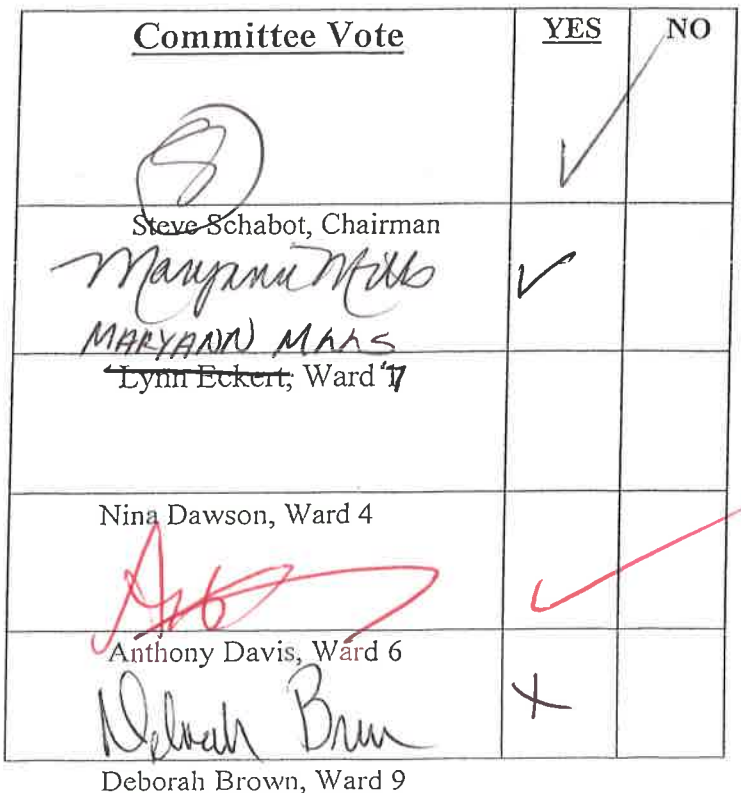 Committee Vote YES NO
Steve Schabot, Chairman
Maryann Mills
MARYANN MILLS
Lynn Eckert, Ward 7
Nina Dawson, Ward 4
Anthony Davis, Ward 6
Deborah Brown
Deborah Brown, Ward 9